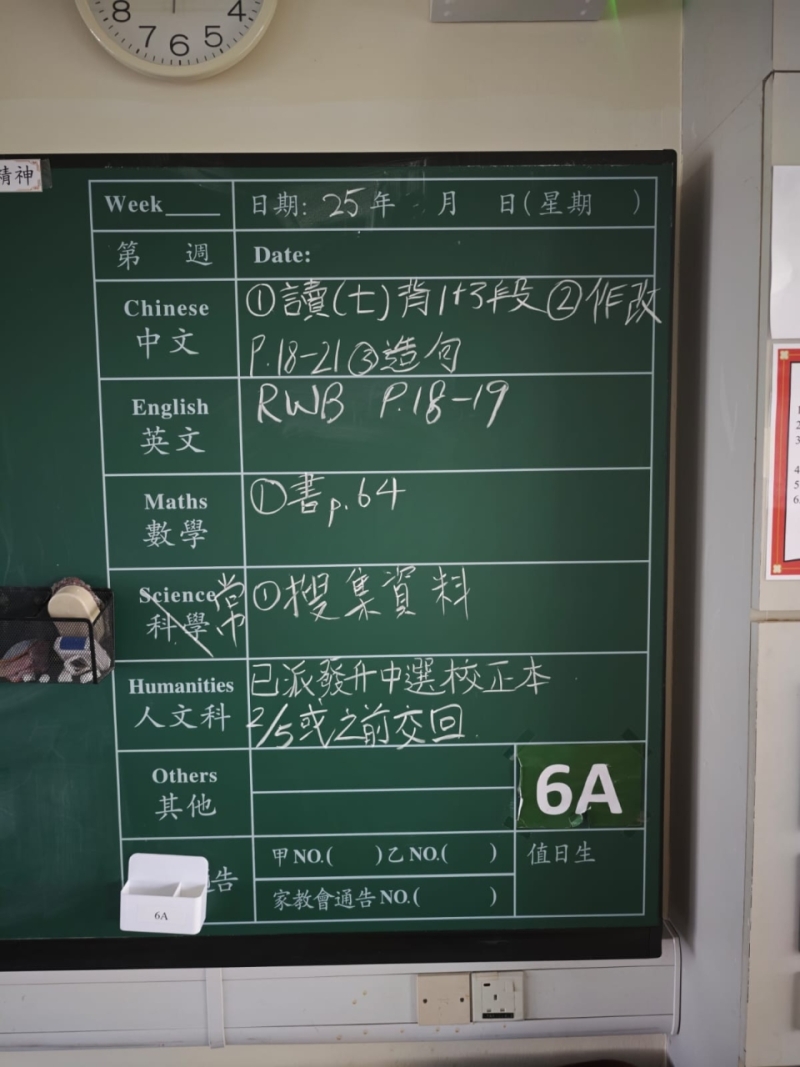 8 4
7 6 5
精神
Week____ 日期: 25年 月 日(星期 )
第 週 Date:
Chinese ①讀(七)背1+3段②作改
中文 P.18-21③造句
English RWB P.18-19
英文
Maths ①書p.64
數學
Science 常 ①搜集資料
科學
Humanities 已派發升中選校正本
人文科 2/5或之前交回.
Others
其他
6A
甲NO.( )乙NO.( ) 值日生
告
家教會通告NO.( )
6A
1
2
3
4
5
6